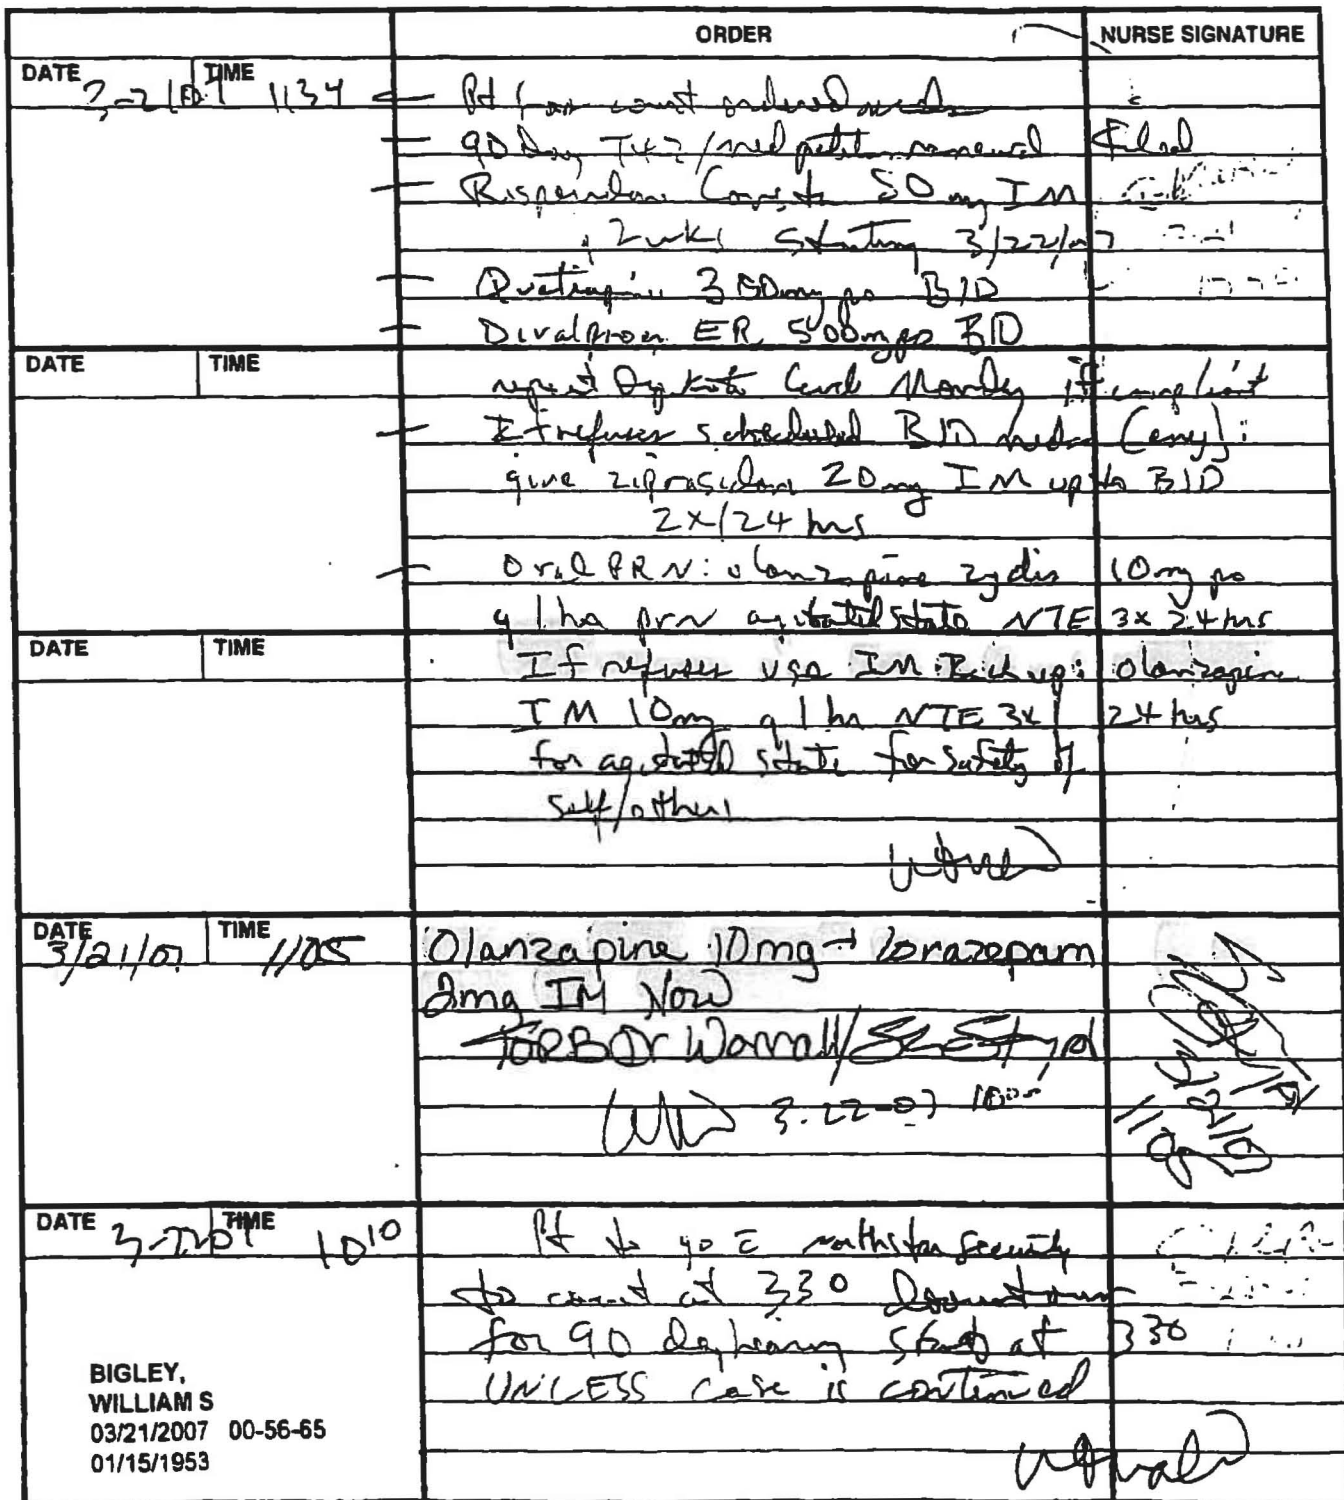 ORDER NURSE SIGNATURE
DATE TIME 1134 Pt for court ordered meds
90 day /med petition renewal filed
Risperidone Consta 50 mg IM
2 wks starting 3/22/07
Quetiapine 300mg po BID
Divalproex ER 500mg po BID
DATE TIME
repeat Depakote level Monday if compliant
If refuses scheduled BID meds (any):
give ziprasidone 20mg IM up to BID
2x/24 hrs
Oral PRN: olanzapine zydis 10mg po
q 1 hr prn agitated state NTE 3x 24 hrs
DATE TIME
If refuses use IM Backup: olanzapine
IM 10mg q 1 hr NTE 3x/ 24 hrs
for agitated state for safety of
self/others
DATE 3/21/07 TIME 1105
Olanzapine 10mg + lorazepam
2mg IM Now
TORB Dr Worrall/
3-22-07
DATE TIME 1010
Pt to go c northstar security
to court at 330 downtown
for 90 day hearing start at 330
UNLESS case is continued
BIGLEY,
WILLIAM S
03/21/2007 00-56-65
01/15/1953